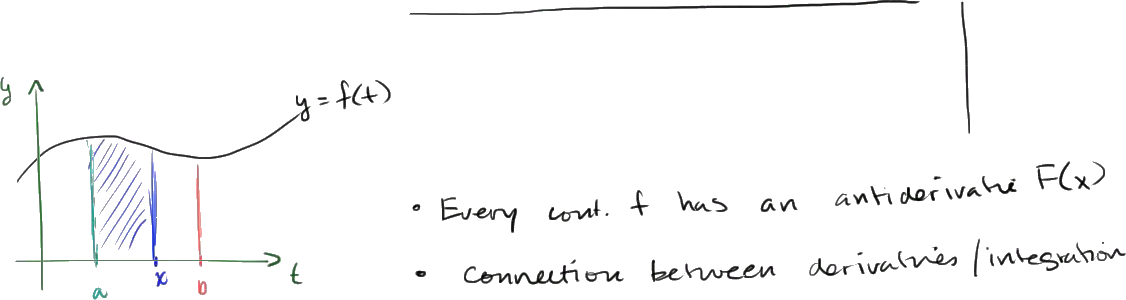 y
y = f(t)
• Every cont. f has an antiderivative F(x)
• Connection between derivatives/integration
t
a x b